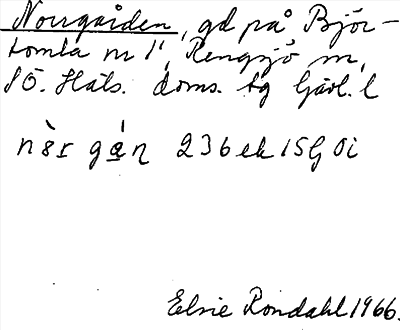 Norrgården, gd på Björ-
tomta nr 1, Rengsjö sn,
SÖ. Häls. doms. tg Gävl. l
nɤ̀r gán 236 ek 15G Öi
Elsie Rondahl 1966.